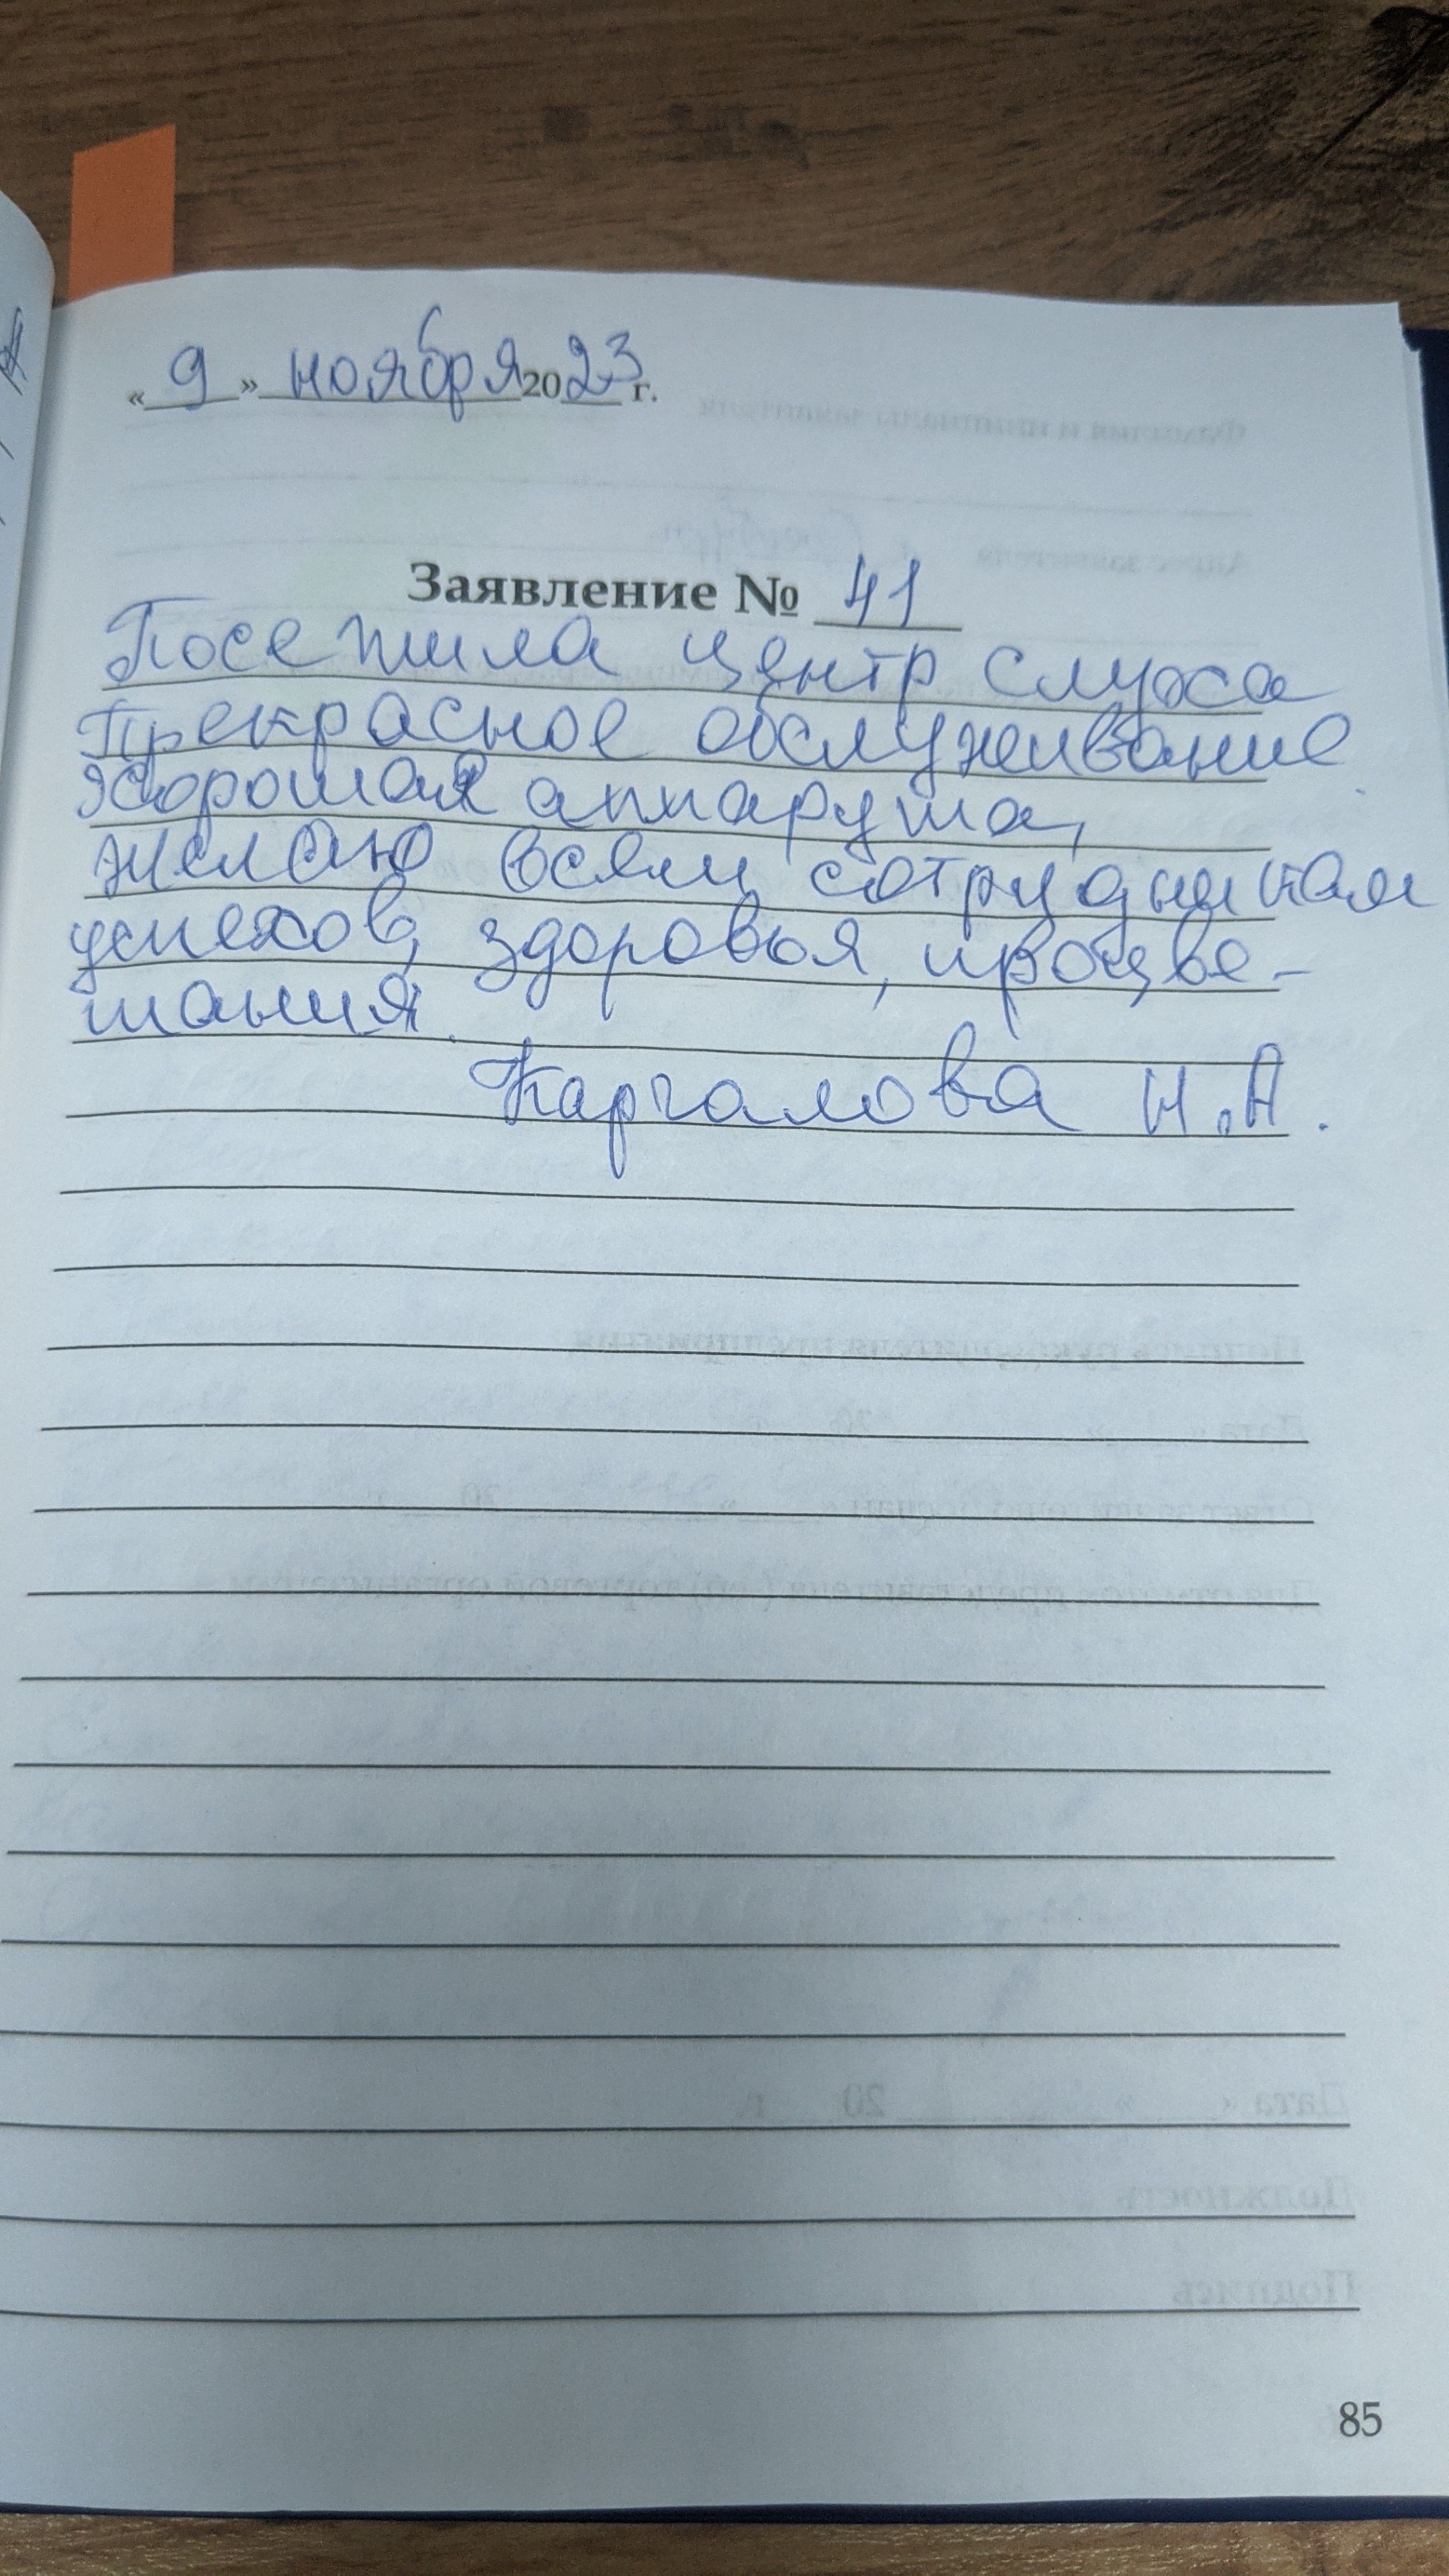 « 9 » ноября 2023 г.
Заявление № 41
Посетила центр слуха
Прекрасное обслуживание
хорошая аппарута,
желаю всем сотрудникам
успехов, здоровья, процве-
тания.
Каргалова Н.А.
85